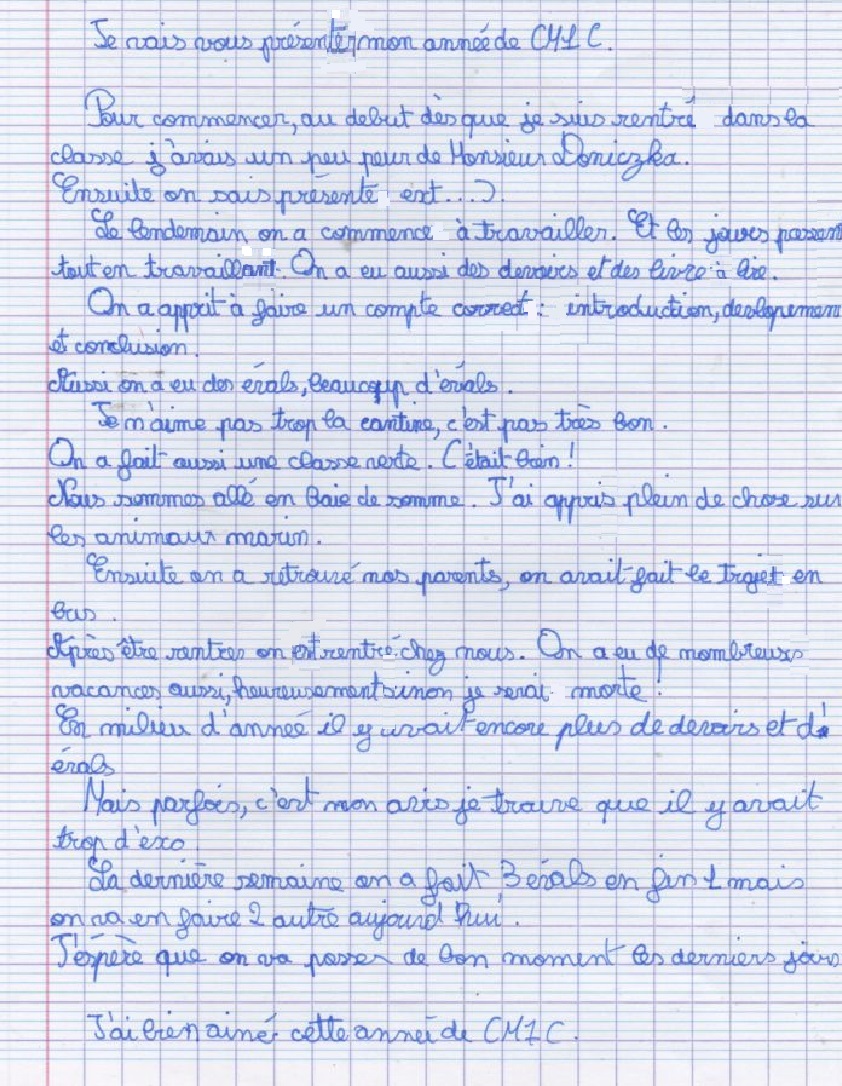 Je vais vous présenter mon année de CM1 C.
Pour commencer, au debut dès que je suis rentré dans la
classe j'avais un peu peur de Monsieur Doniczka.
Ensuite on sais présenté ext...).
Le lendemain on a commencé à travailler. Et les jours passent
tout en travaillant. On a eu aussi des devoirs et des livre à lire.
On a apprit à faire un compte correct : introduction, devlopement
et conclusion.
Aussi on a eu des évals, beaucoup d'évals.
Je n'aime pas trop la cantine, c'est pas très bon.
On a fait aussi une classe verte. C'était bien !
Nous sommes allé en Baie de somme. J'ai appris plein de chose sur
les animaux marin.
Ensuite on a retrouvé nos parents, on avait fait le trajet en
bus.
Après être rentrer on est rentré chez nous. On a eu de nombreuses
vacances aussi, heureusement sinon je serai morte !
En milieu d'anneé il y avait encore plus de devoirs et d'
évals
Mais parfois, c'est mon avis je trouve que il y avait
trop d'exo.
La dernière semaine on a fait 3 évals en fin 1 mais
on va en faire 2 autre aujourd'hui.
J'éspère que on va passer de bon moment les derniers jours
J'ai bien aimé cette anneé de CM1 C.